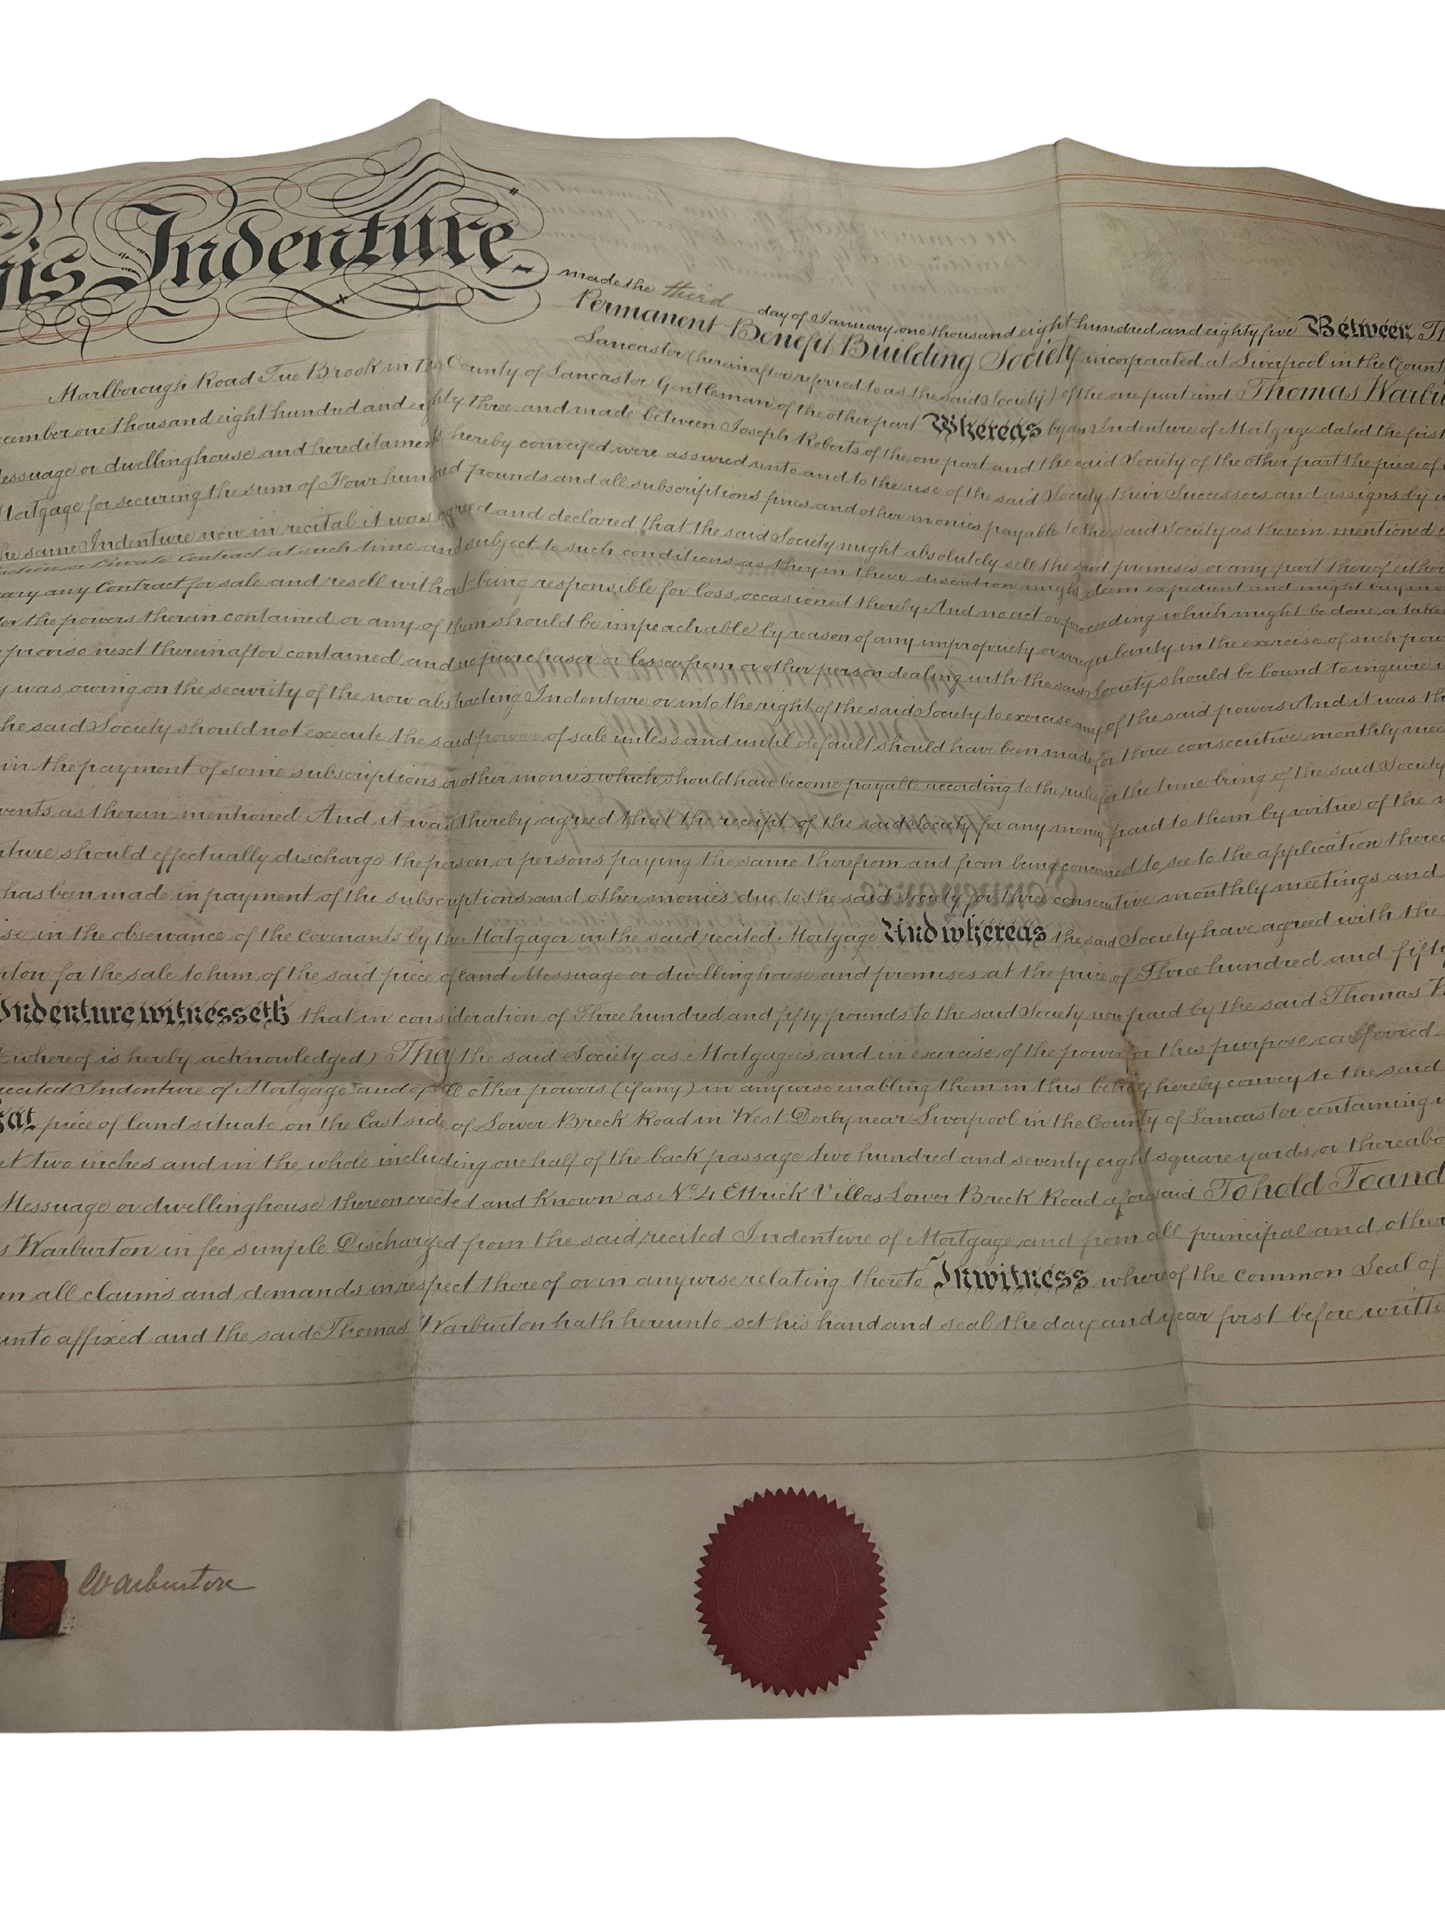 his Indenture
made the third day of January one thousand eight hundred and eighty five Between
Permanent Benefit Building Society incorporated at Liverpool in the
Lancaster (hereinafter referred to as the said Society) of the one part and Thomas
Marlborough Road Tue Brook in the County of Lancaster Gentleman of the other part Whereas by an Indenture of Mortgage dated the first
one thousand eight hundred and eighty three and made between Joseph Roberts of the one part and the said Society of the other part the piece of
or dwellinghouse and hereditaments hereby conveyed were assured unto and to the use of the said Society their Successors and assigns by
Mortgage for securing the sum of Four hundred pounds and all subscriptions fines and other monies payable to the said Society as therein mentioned
the same Indenture now in recital it was agreed and declared that the said Society might absolutely sell the said premises or any part thereof either
or Private Contract at such time and subject to such conditions as they in their discretion might deem expedient and might buy in
any Contract for sale and resell without being responsible for loss occasioned thereby And no act or proceeding which might be done or
the powers therein contained or any of them should be impeachable by reason of any impropriety or irregularity in the exercise of such
proviso next thereinafter contained and no purchaser or lessee from or other person dealing with the said Society should be bound to inquire
was owing on the security of the now abstracting Indenture or into the right of the said Society to exercise any of the said powers And it was
the said Society should not execute the said power of sale unless and until default should have been made for three consecutive monthly
in the payment of some subscriptions or other monies which should have become payable according to the rules for the time being of the said Society
as therein mentioned And it was thereby agreed that the receipt of the said Society for any money paid to them by virtue of the
should effectually discharge the person or persons paying the same therefrom and from being concerned to see to the application
has been made in payment of the subscriptions and other monies due to the said Society for three consecutive monthly meetings and
in the observance of the Covenants by the Mortgagor in the said recited Mortgage And whereas the said Society have agreed with the
for the sale to him of the said piece of land Messuage or dwellinghouse and premises at the price of Three hundred and fifty
Indenture witnesseth that in consideration of Three hundred and fifty pounds to the said Society now paid by the said Thomas
whereof is hereby acknowledged) They the said Society as Mortgagees and in exercise of the power for this purpose
recited Indenture of Mortgage and of all other powers (if any) in anywise enabling them in this behalf hereby convey to the said
piece of land situate on the East side of Lower Breck Road in West Derby near Liverpool in the County of Lancaster containing
two inches and in the whole including one half of the back passage two hundred and seventy eight square yards or
Messuage or dwellinghouse thereon erected and known as No. 4 Ettrick Villas Lower Breck Road aforesaid To hold To and
Warburton in fee simple Discharged from the said recited Indenture of Mortgage and from all principal and other
all claims and demands in respect thereof or in anywise relating thereto In witness whereof the common Seal of
unto affixed and the said Thomas Warburton hath hereunto set his hand and seal the day and year first before
Warburton